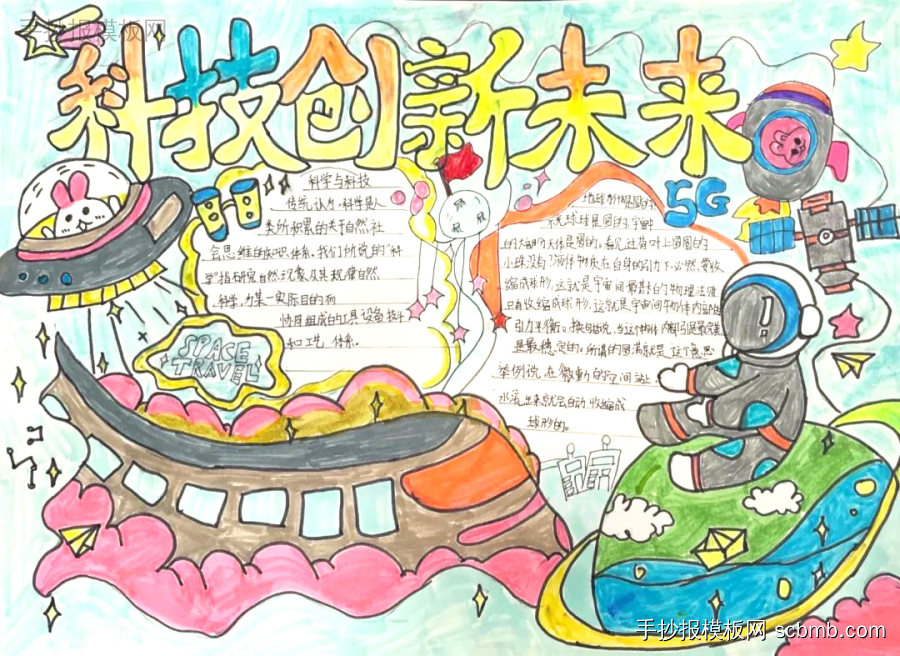 手抄报模板网
科技创新未来
科学与科技
传统认为，科学是人
类所积累的关于自然社
会思维的知识体系，我们所说的“科
学”指研究自然现象及其规律自然
科学，为某一实际目的而
协同组成的工具、设备、技
和工艺体系。
SPACE
TRAVEL
5G
地球为何是圆的
球是圆的，宇宙
的大部分天体是圆的。看见过荷叶上圆圆的
小珠没有？液体物质在自身的引力下必然要收
缩成球形，这就是宇宙间最基的物理法
只有收缩成球形，这就是宇宙间物体内部的
引力平衡。
是最稳定的。所谓的圆满就是这个意思
举例说，在微重力的空间站，
水流出来就会自动收缩成
球形的。
手抄报模板网 scbmb.com